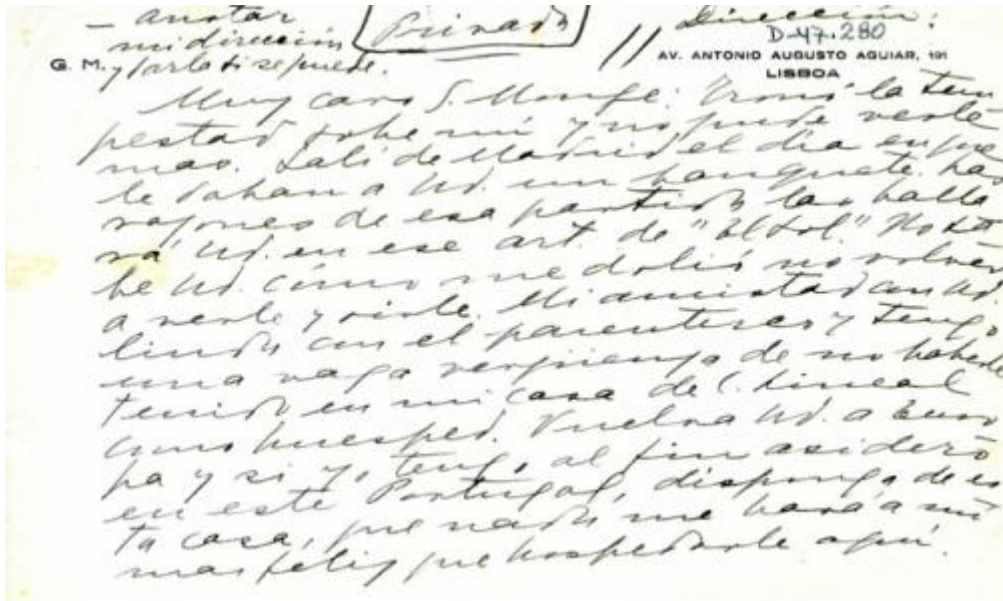 – anotar
mi dirección
y darla si se puede.
Privada
Dirección:
D-47.280
G. M.
// AV. ANTONIO AUGUSTO AGUIAR, 191
LISBOA
Muy caro S. Monge: Tronó la tem
pestad sobre mí y no pude verle
mas. Salí de Madrid el día en que
le daban a Ud. un banquete. Las
razones de esa partida las halla
rá Ud. en ese art. de "El Sol." No sa
be Ud. cómo me dolió no volver
a verle y oirle. Mi amistad con Ud.
linda con el parentesco y tengo
una vaga vergüenza de no haberle
tenido en mi casa de C. Lineal
como huesped. Vuelva Ud. a Euro
pa y si yo tengo al fin asidero
en este Portugal, disponga de es
ta casa, que nada me hará a mí
mas feliz que hospedarle aquí.